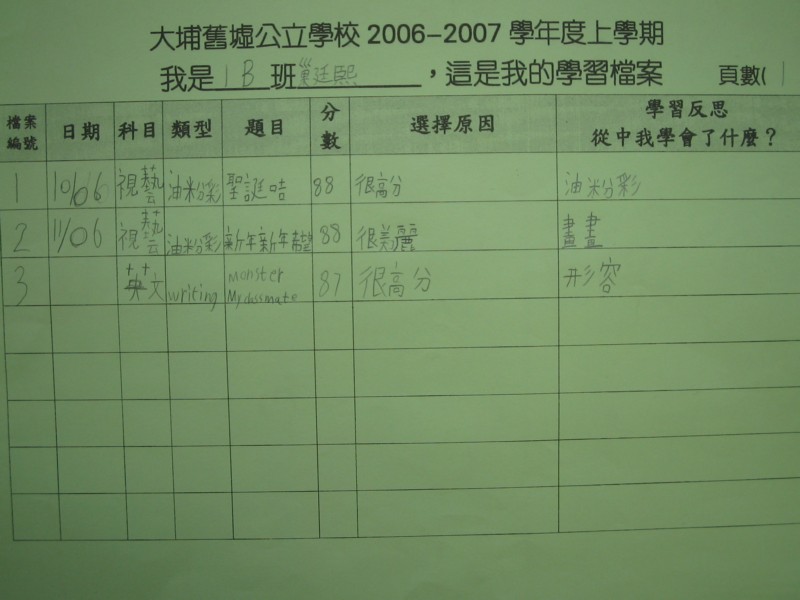 大埔舊墟公立學校 2006-2007 學年度上學期
我是 1B 班 廷熙 ，這是我的學習檔案 頁數( 1
檔案編號 日期 科目 類型 題目 分數 選擇原因 學習反思 從中我學會了什麼？
1 10/06 視藝 油粉彩 聖誕咭 88 很高分 油粉彩
2 11/06 視藝 油粉彩 新年新年希望 88 很美麗 畫畫
3 英文 writing monster My classmate 87 很高分 形容